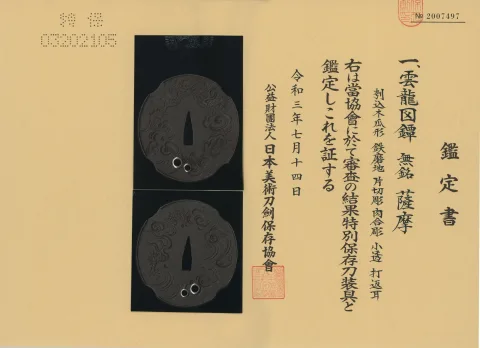 № 2007497
鑑定書
一、雲龍図鐔 無銘 薩摩
刻込木瓜形 鉄磨地 片切彫 肉合彫 小透 打返耳
右は當協會に於て審査の結果特別保存刀装具と
鑑定しこれを証する
令和三年七月十四日
公益財團法人 日本美術刀劍保存協會
特保
03202105